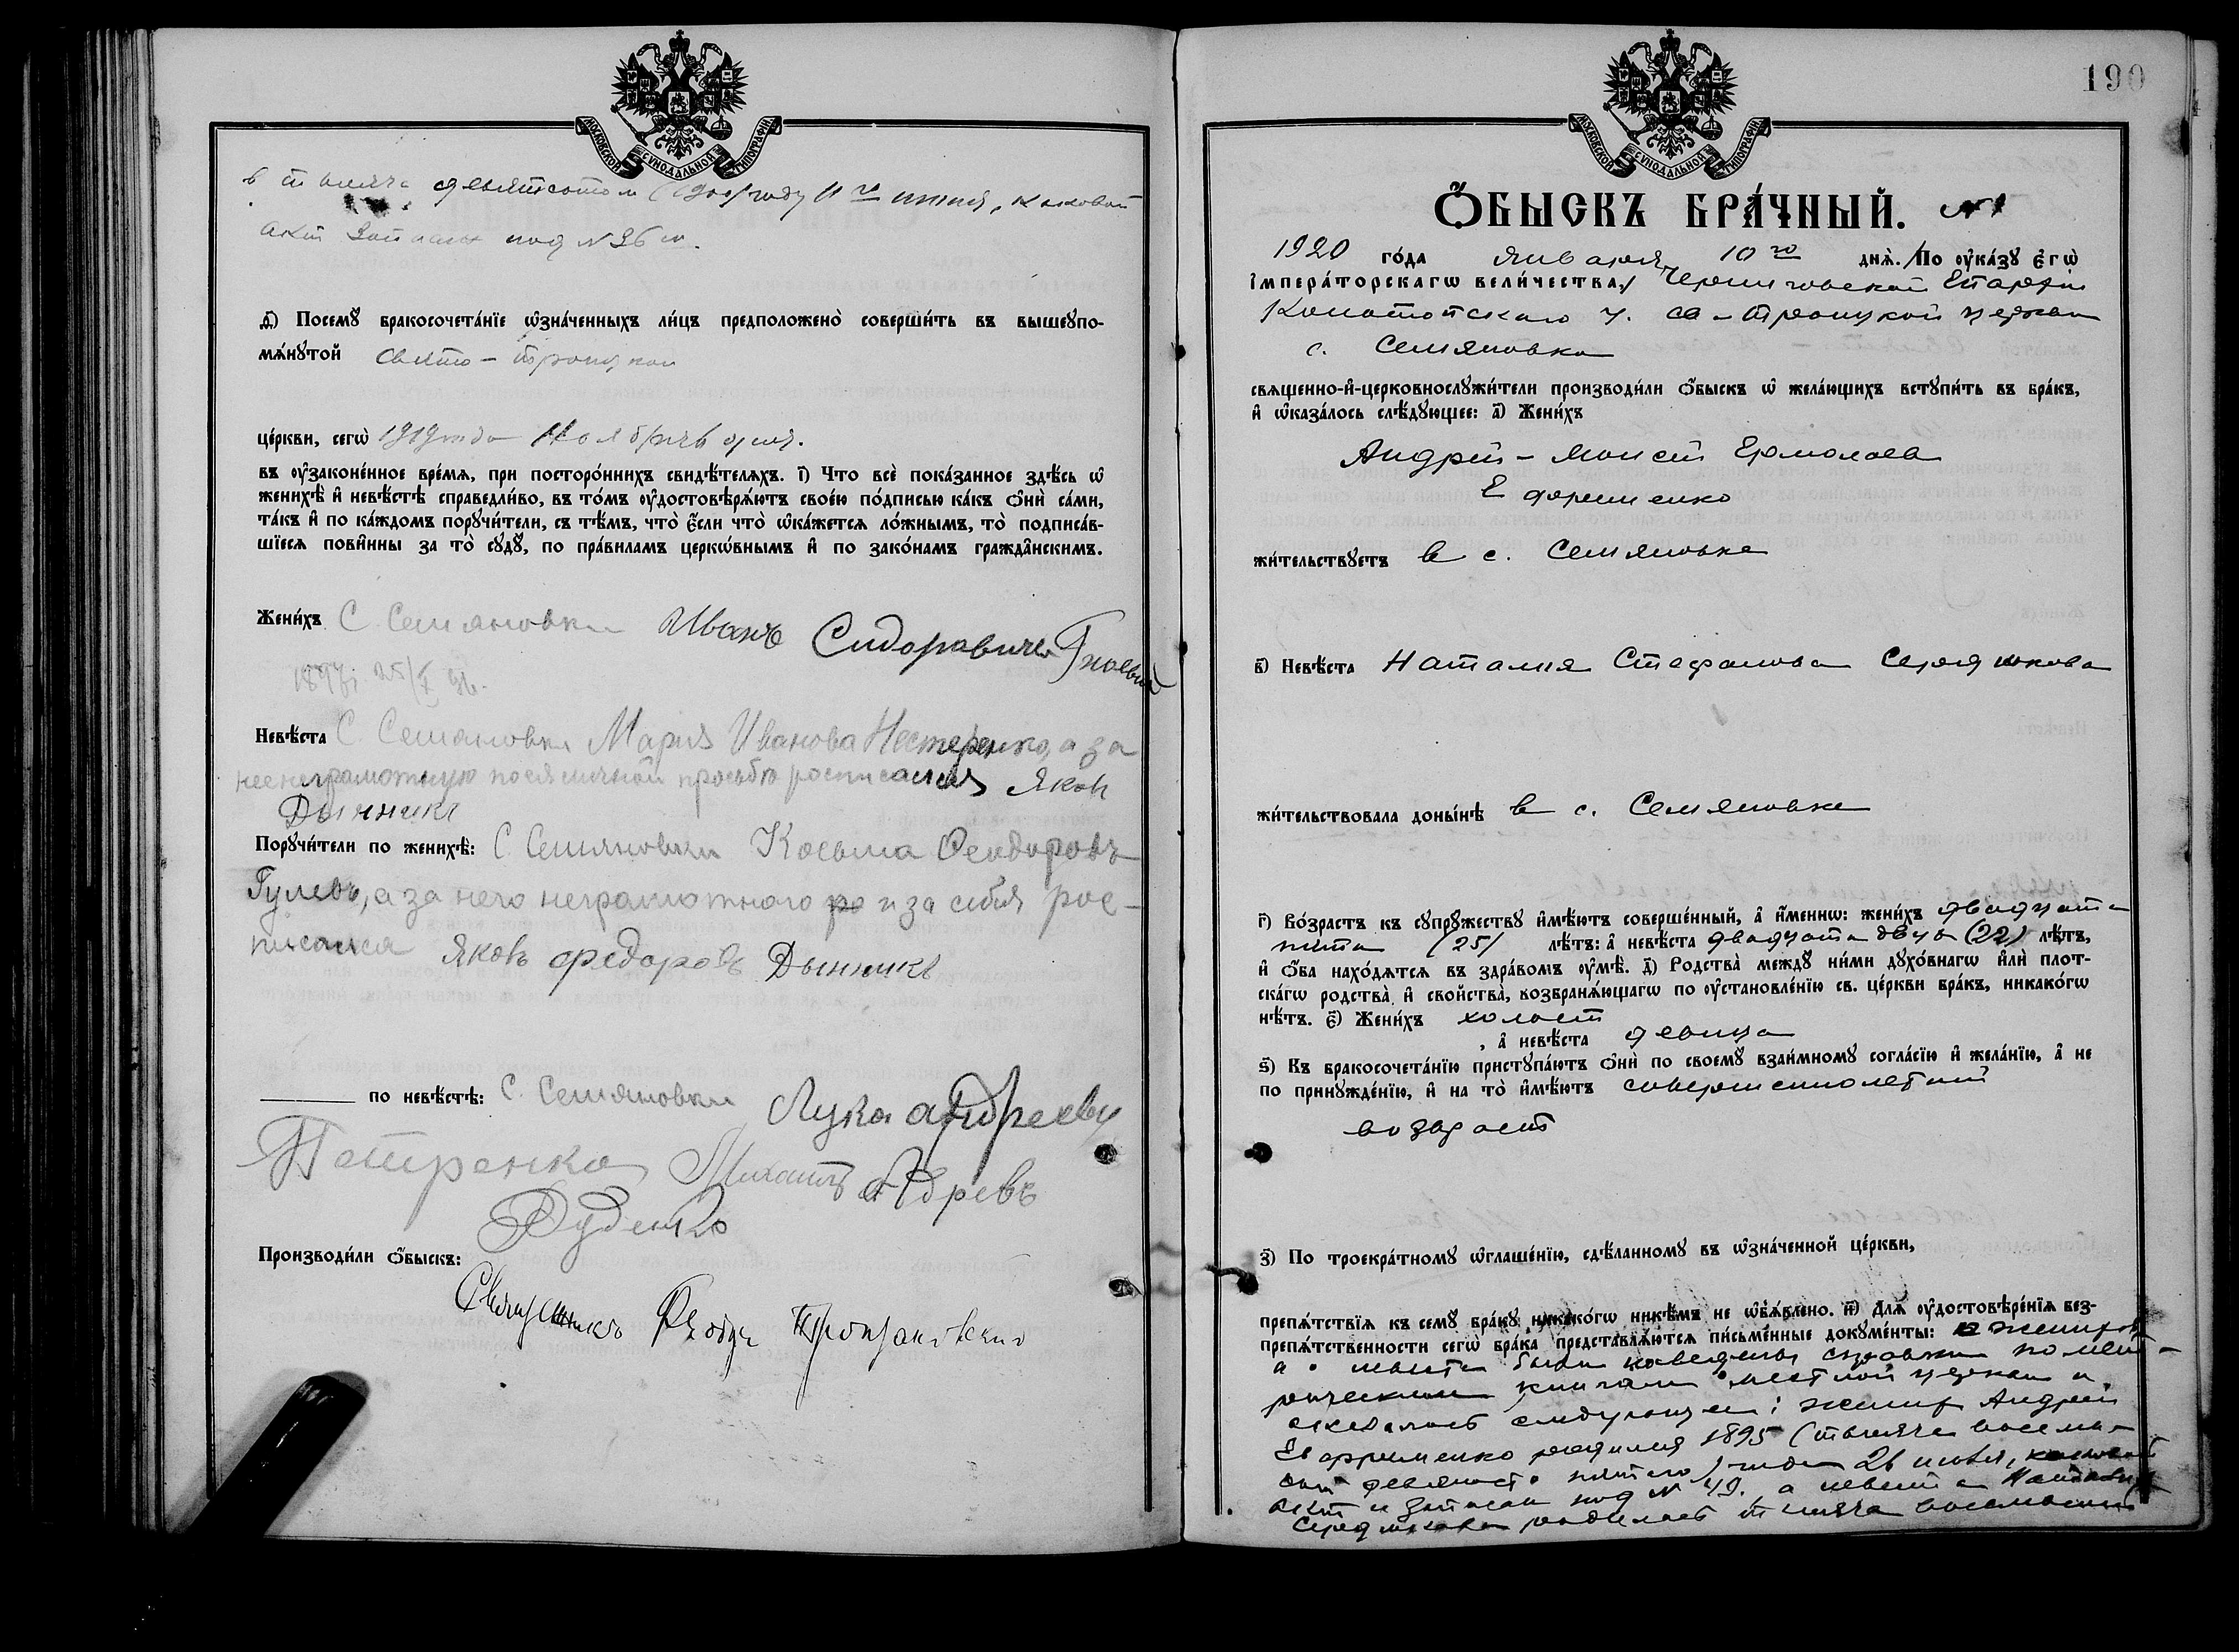 МОСКОВСКОЙ СУНОДАЛЬНОЙ ТИПОГРАФІИ
в тысяча девятсотом (1900) году 11го июня, каковой
акт записан под N 36 м.
д҃) Посемꙋ̀ бракосочета́нїе ѡ҆зна́ченныхъ ли́цъ предположено̀ соверши́ть въ вышеꙋпо-
мѧ́нꙋтой свято-троицкой
це́ркви, сегѡ̀ 1919 года Ноября 6 дня.
въ ᲂу҆законе́нное вре́мѧ, при посторо́ннихъ свидѣ́телѧхъ. і҃) Что̀ всѐ пока́занное здѣ́сь ѡ҆
женихѣ̀ и҆ невѣ́стѣ справедли́во, въ то́мъ ᲂу҆достовѣрѧ́ютъ свое́ю по́дписью ка́къ ѻ҆нѝ са́ми,
та́къ и҆ по ка́ждомъ порꙋчи́тели, съ тѣ́мъ, что̀ є҆́сли что̀ ѡ҆ка́жетсѧ ло́жнымъ, то̀ подписа́в-
шїесѧ пови́нны за то̀ сꙋдꙋ̀, по пра́виламъ церкѡ́внымъ и҆ по зако́намъ гражда́нскимъ.
Жени́хъ С. Семяновки Иванъ Сидоравичъ Гноевый
Невѣ́ста С. Семяновки Мария Иванова Нестеренко, а за
нее неграмотную по ея личной просьбе росписался Яков
Дынникъ
Порꙋчи́тели по женихѣ̀: С. Семяновки Косьма Ѳеодоровъ
Гулевъ, а за него неграмотного ро и за себя рос-
писался Яковъ Федоровъ Дынникъ
по невѣ́стѣ: С. Семяновки Лука Андреевъ
Петренко Михаилъ Адревъ
Руденко
Производи́ли ѻ҆́быскъ:
Священникъ
190
МОСКОВСКОЙ СУНОДАЛЬНОЙ ТИПОГРАФІИ
Ѻ҆́БЫСКЪ БРА́ЧНЫЙ. N 1
1920 го́да января 10го днѧ̀. /По ᲂу҆ка́зꙋ є҆гѡ̀
і҆мпера́торскагѡ вели́чества,/ Черниговской Епархии
Конотопского у. св-троицкой церкви
с. Семяновки
свѧщенно-и҆-церковнослꙋжи́тели производи́ли ѻ҆́быскъ ѡ҆ жела́ющихъ встꙋпи́ть въ бра́къ,
и҆ ѡ҆каза́лось слѣ́дꙋющее: а҃) Жени́хъ
Андрей - Моисей Ермолаев
Ефременко
жи́тельствꙋетъ в с. Семяновке
в҃) Невѣ́ста Наталия Стефанова Сердюкова
жи́тельствовала доны́нѣ в с. Семяновке
г҃) Во́зрастъ къ сꙋпрꙋ́жествꙋ и҆мѣ́ютъ соверше́нный, а҆ и҆́меннѡ: жени́хъ двадцати
пяти (25) лѣ́тъ: а҆ невѣ́ста двадцати двух (22) лѣ́тъ,
и҆ ѻ҆́ба нахо́дѧтсѧ въ здра́вомъ ᲂу҆мѣ̀. д҃) Родства̀ междꙋ̀ ни́ми дꙋхо́внагѡ и҆лѝ плот-
ска́гѡ родства̀ и҆ сво́йства̀, возбранѧ́ющагѡ по ᲂу҆становле́нїю св. це́ркви бра́къ, никако́гѡ
нѣ́тъ. є҃) Жени́хъ холост
, а҆ невѣ́ста девица
ѕ҃) Къ бракосочета́нїю пристꙋпа́ютъ ѻ҆нѝ по своемꙋ̀ взаи́мномꙋ согла́сїю и҆ жела́нїю, а҆ не
по принꙋжде́нїю, и҆ на то̀ и҆мѣ́ютъ совершеннолетний
возраст
з҃) По троекра́тномꙋ ѡ҆глаше́нїю, сдѣ́ланномꙋ въ ѡ҆зна́ченной це́ркви,
препѧ́тствїѧ къ семꙋ̀ бра́кꙋ никако́гѡ никѣ́мъ не ѡ҆б̾ѧ́влено. и҃) Длѧ̀ ᲂу҆достовѣре́нїѧ без-
препѧ́тственности сегѡ̀ бра́ка представлѧ́ютсѧ пи́сьменные докꙋме́нты: о женихе
а о невесте были наведены справки по мет-
рическим книгам местной церкви и
оказалось следующее: жених Андрей
Ефременко родился 1895 (тысяча восемь-
сот девяносто пятого) года 26 июля, каковой
акт и записан под N 49, а невеста Наталия
Сердюкова родилась тысяча восемьсот